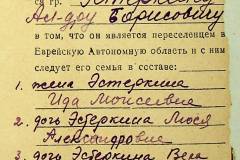 ся гр.
Борисовичу
в том, что он является переселенцем в
Еврейскую Автономную область и с ним
следует его семья в составе:
1. жена Эстеркина
Ида Моисеевна
2. дочь Эстеркина Люся
Александровна
3. дочь Эстеркина Вера